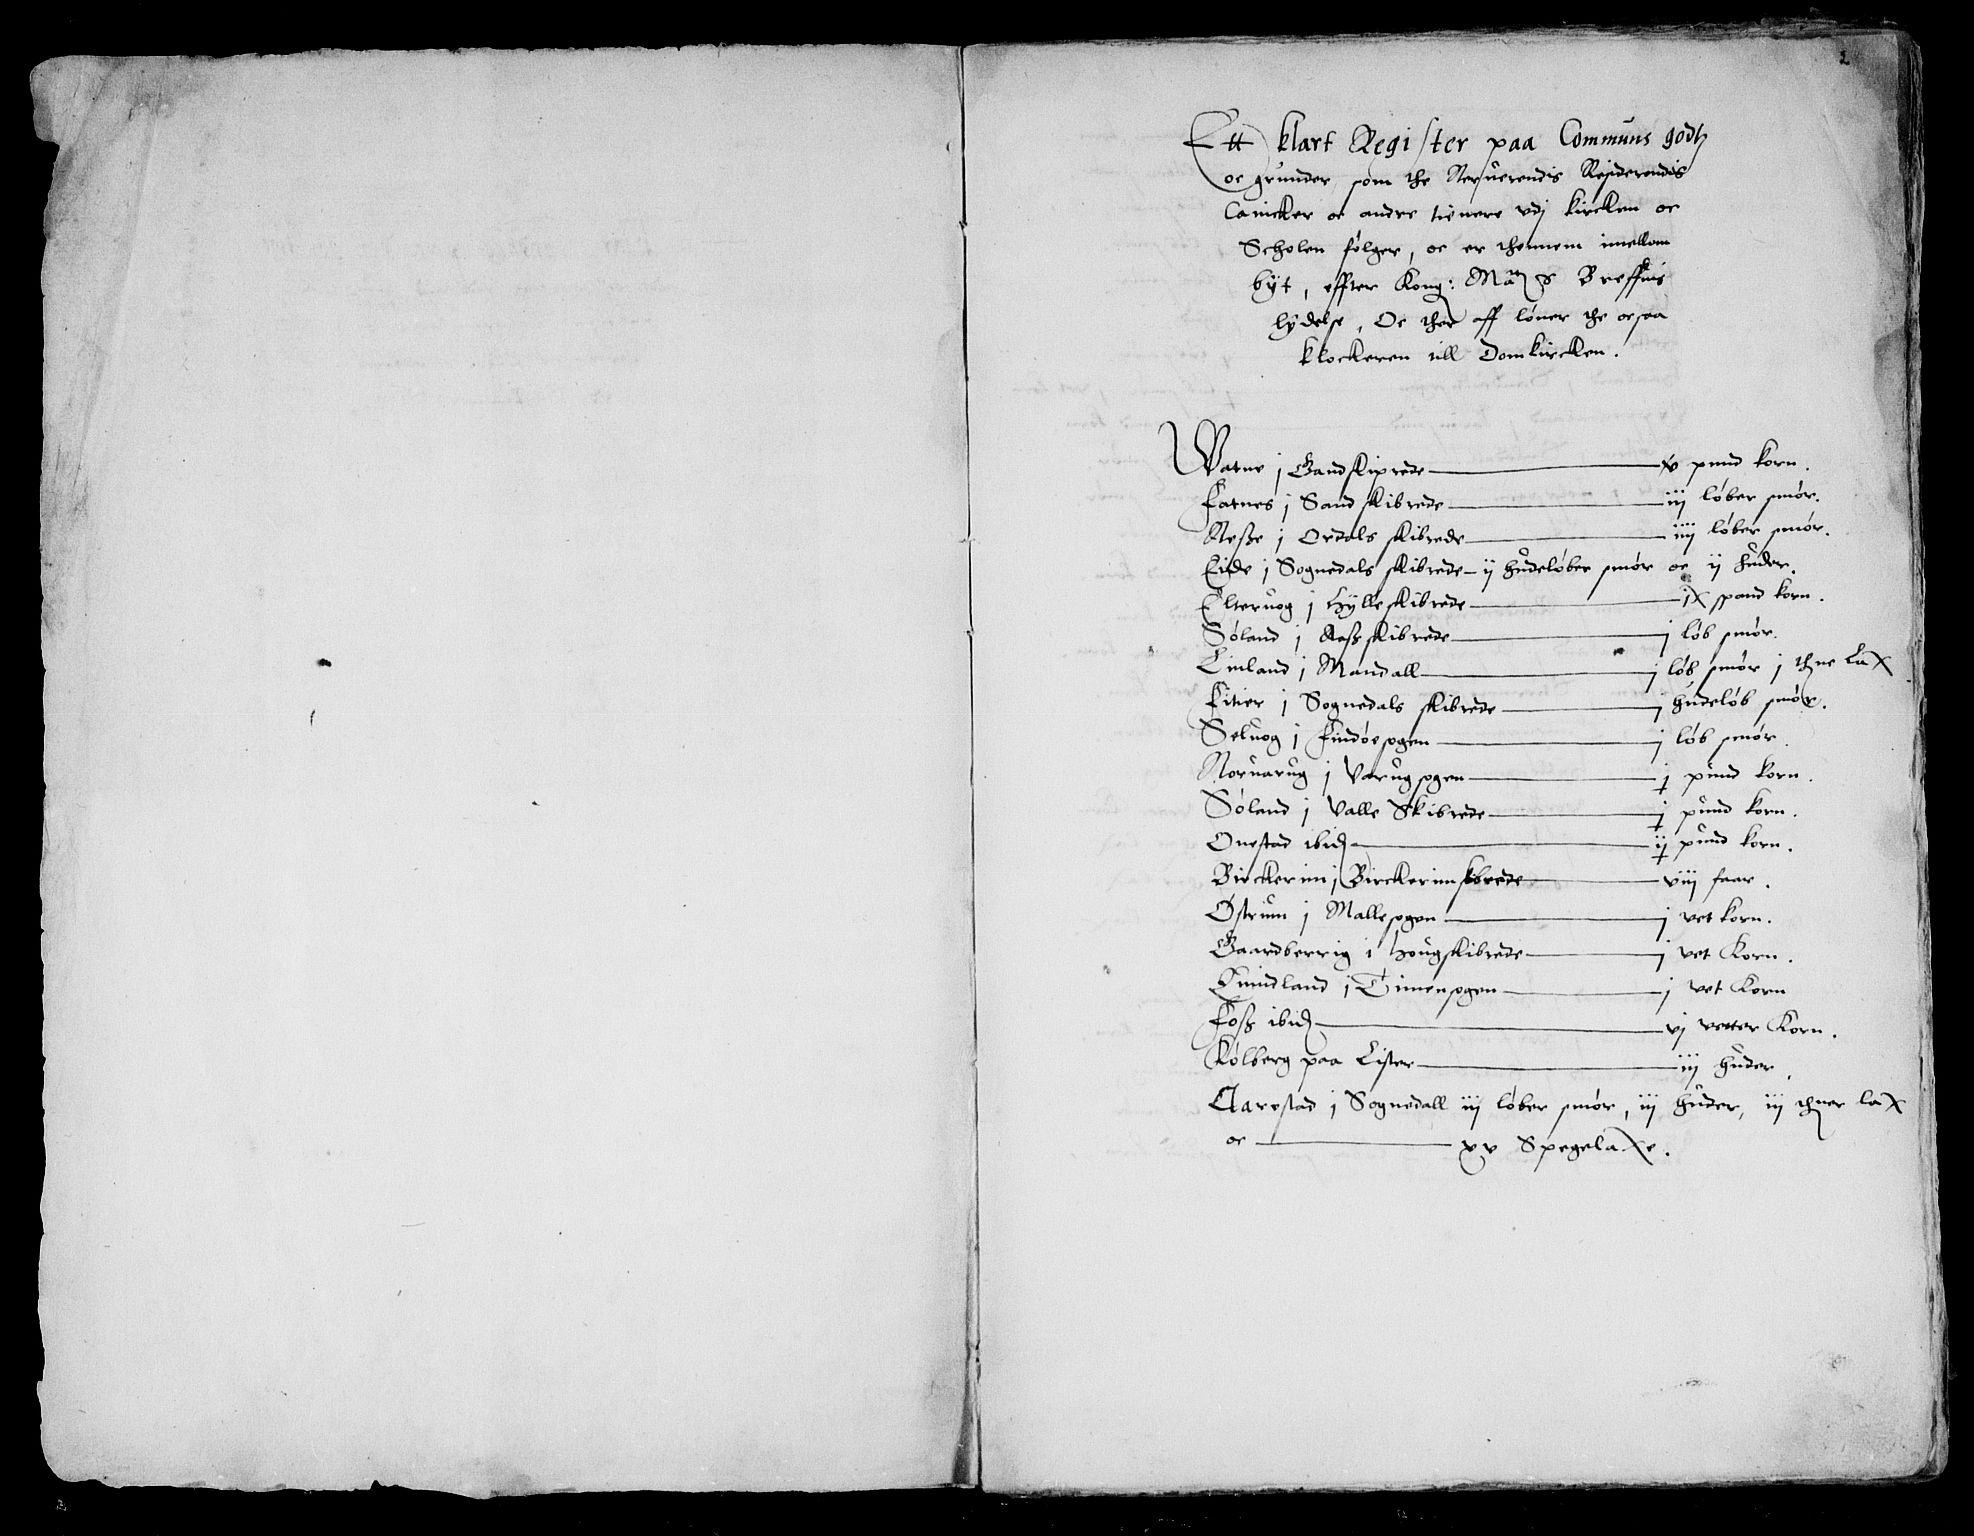 2
Ett klart Register paa Communs godtz
oc grunder som the Reruerendis Residerendis
Canicker oc andre tienere vdj kircken oc
Scholen følger, oc er thennem imellom
byt, effter Kong: Matz Breffuis
lydelse, Oc ther aff løner the ocsaa
klockeren till Domkircken.
Watne j Gandskiprede xv pund korn.
Fatnes j Sandskibrede iij løber smør.
Nesze j Ordals skibrede iiij løber smør.
Eide j Sognedals skibrede ij hudeløber smør oc ij huder.
Elteruog j Hylleskibrede ix spand korn.
Søland j Aaszskibrede j løb smør.
Linland j Mandall j løb smør j thne Lax
Eitier j Sognedals skibrede j hudeløb smør.
Seluog j Findøesogen j løb smør.
Noruarug j Varugsogen j pund korn.
Søland j Valle Skibrede j pund korn.
Onestad ibid ij pund korn.
Birckerim j Birckerimskbrede viij faar.
Østrum j Mallesogen j vet korn.
Gaardberrig i Hougskibrede j vet Korn.
Quindland j Timensogen j vet Korn
Fosz ibid vj vetter Korn.
Kølberg paa Lister iij huder.
Aarestad j Sognedall iij løber smør, iij huder, iij thner lax
oc xv Spegelaxe.